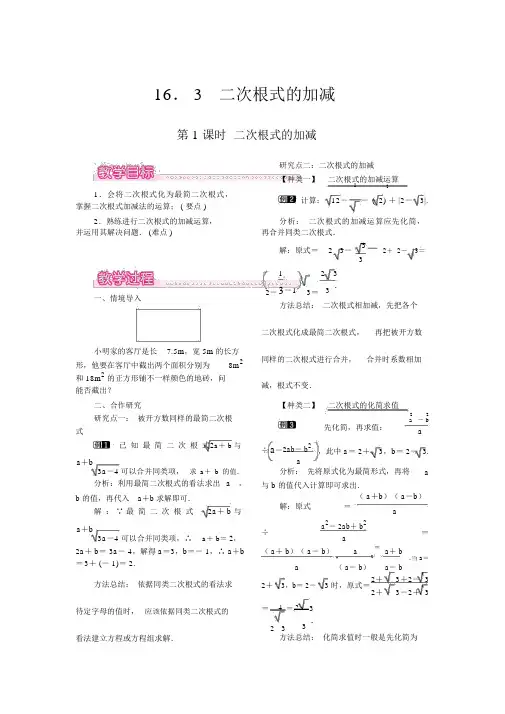 16. 3 二次根式的加减
第 1 课时 二次根式的加减
教学目标
1.会将二次根式化为最简二次根式,
掌握二次根式加减法的运算; ( 要点 )
2.熟练进行二次根式的加减运算,
并运用其解决问题. (难点 )
教学过程
一、情境导入
小明家的客厅是长 7.5m,宽 5m 的长方
形,他要在客厅中截出两个面积分别为 8m²
和 18m² 的正方形铺不一样颜色的地砖,问
能否截出?
二、合作研究
研究点一: 被开方数同样的最简二次根
式
例1 已知最简二次根 √2a+b 与
a+b
√3a-4 可以合并同类项, 求 a+ b 的值.
分析:利用最简二次根式的看法求出 a ,
b 的值,再代入 a+b 求解即可.
解:∵最简二次根式 √2a+b 与
a+b
√3a-4 可以合并同类项,∴ a+ b= 2,
2a+ b= 3a- 4,解得 a=3,b=- 1,∴ a+b
=3+ (- 1)= 2.
方法总结: 依据同类二次根式的看法求
待定字母的值时, 应该依据同类二次根式的
看法建立方程或方程组求解.
研究点二:二次根式的加减
【种类一】 二次根式的加减运算
例2 计算: √12- - √2) + |2- √3|.
分析: 二次根式的加减运算应先化简,
再合并同类二次根式.
解:原式= 2√3- √3/3 - 2+ 2- √3=
(2- 1/3 -1)√3= 2√3/3 .
方法总结: 二次根式相加减,先把各个
二次根式化成最简二次根式, 再把被开方数
同样的二次根式进行合并, 合并时系数相加
减,根式不变.
【种类二】 二次根式的化简求值
例3 先化简,再求值: a²-b²/a
÷(a-2ab-b²/a),此中 a= 2+ √3,b= 2- √3.
分析: 先将原式化为最简形式,再将 a
与 b 的值代入计算即可求出.
解:原式 = ( a+b)( a-b)/a
÷ a²- 2ab+ b²/a =
( a+b)( a-b)/a · a/( a-b)² = a+b/a-b .当 a=
2+ √3,b= 2- √3 时,原式= 2+ √3+2- √3/2+ √3-2+ √3
= 4/2√3 = 2√3/3 .
方法总结: 化简求值时一般是先化简为